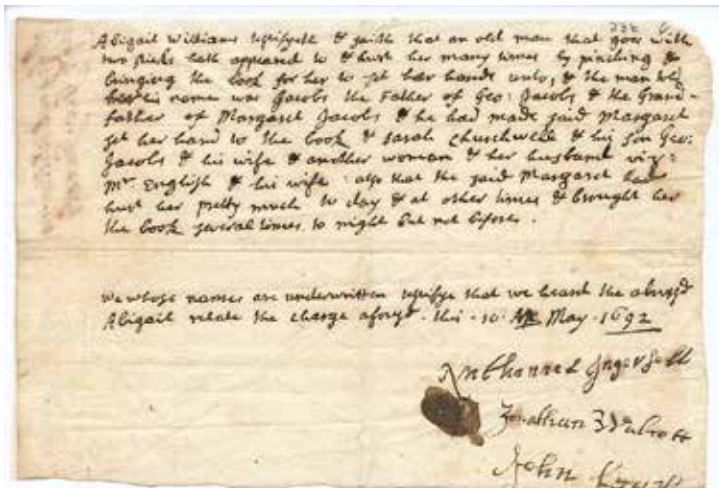 Abigail Williams testifyeth & saith that an old man that goes with
two sticks hath appeared to & hurt her many times by pinching &
bringing the book for her to set her hand unto, & the man told
her his name was Jacobs the Father of Geo: Jacobs & the Grand-
father of Margaret Jacobs & he had made said Margaret
set her hand to the book & Sarah Churchwell & his son Geo:
Jacobs & his wife & another woman & her husband viz:
Mr English & his wife: also that the said Margaret had
hurt her pretty much to day & at other times & brought her
the book several times to night but not before.
we whose names are underwritten testifye that we heard the abovesd
Abigail relate the charge aforesd this 10 May 1692
Nathanael Ingersoll
Jonathan Walcott
John